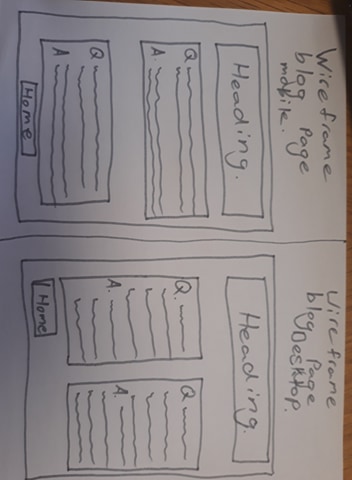 Wireframe
blog Page
mobile.
Heading.
Q
A.
Q
A
Home
Wireframe
blog Page
Desktop.
Heading.
Q.
A.
Q
A.
Home